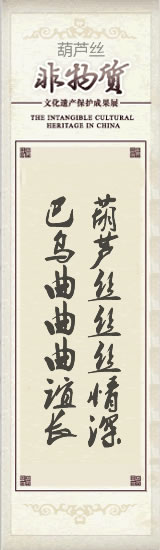 葫芦丝
非物质
文化遗产保护成果展
THE INTANGIBLE CULTURAL
HERITAGE IN CHINA
葫芦丝丝丝情深
巴乌曲曲曲谊长